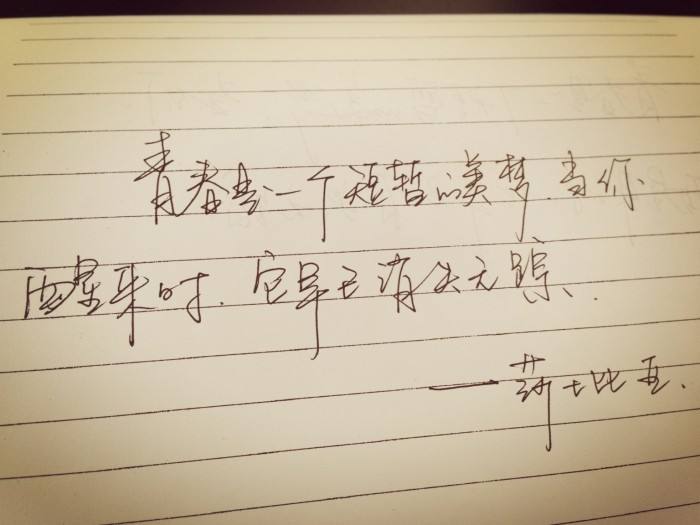 青春是一个短暂的美梦,当你
醒来时,它早已消失无踪、
——莎士比亚、